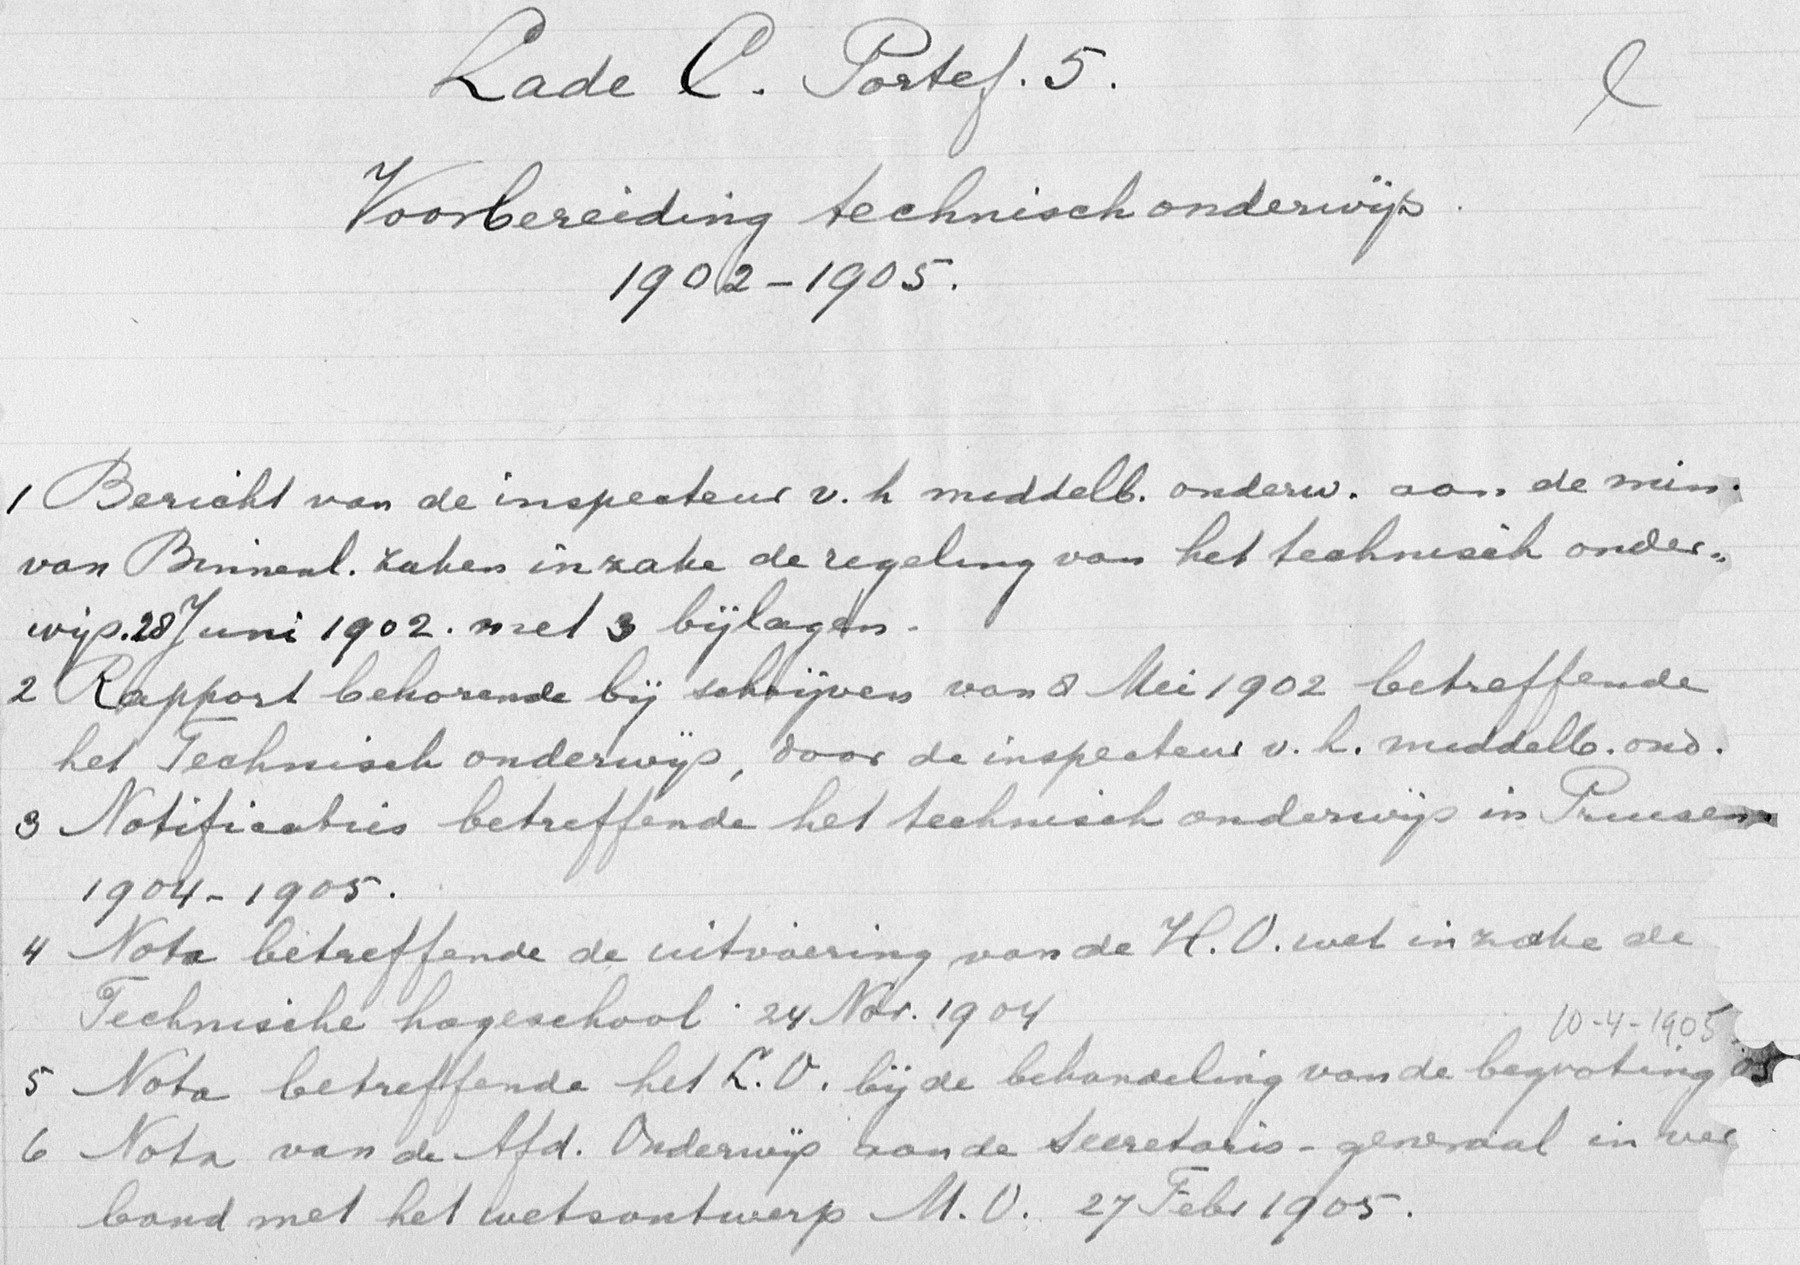 Lade C. Portef. 5.
Voorbereiding technisch onderwijs.
1902-1905.
1 Bericht van de inspecteur v. h middelb. onderw. aan de min.
van Binnenl. zaken inzake de regeling van het technisch onder-
wijs. 28 Juni 1902. met 3 bijlagen.
2 Rapport behorende bij schrijven van 8 Mei 1902 betreffende
het Technisch onderwijs, door de inspecteur v. h. middelb. ond.
3 Notificaties betreffende het technisch onderwijs in Pruisen
1904-1905.
4 Nota betreffende de uitvoering van de H.O. wet inzake de
Technische hogeschool. 24 Nov. 1904
10-4-1905.
5 Nota betreffende het L.O. bij de behandeling van de begroting
6 Nota van de Afd. Onderwijs aan de secretaris-generaal in ver
band met het wetsontwerp M.O. 27 Febr 1905.